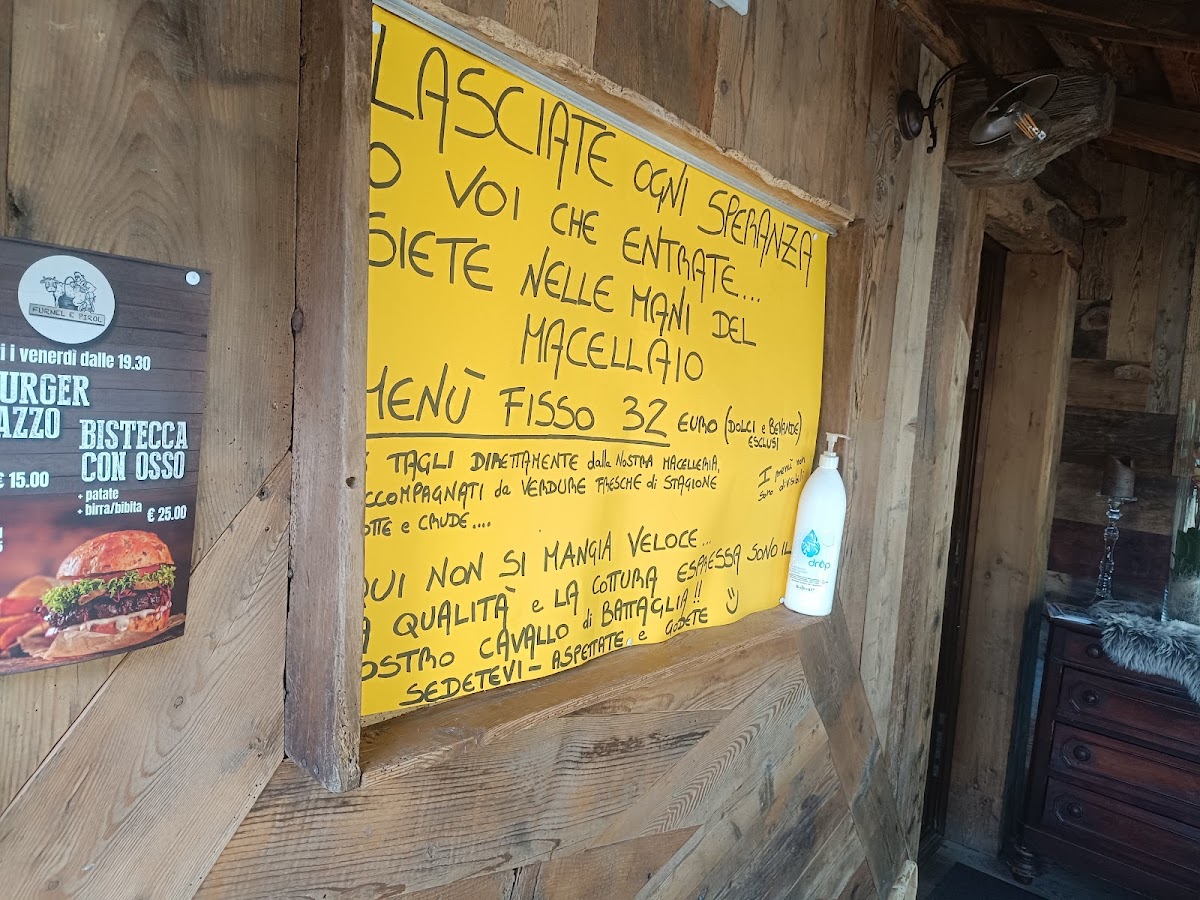 LASCIATE OGNI SPERANZA
O VOI CHE ENTRATE...
SIETE NELLE MANI DEL
MACELLAIO
MENÙ FISSO 32 EURO (DOLCI e BEVANDE)
ESCLUSI
TAGLI DIRETTAMENTE dalla NOSTRA MACELLERIA,
ACCOMPAGNATI da VERDURE FRESCHE di STAGIONE
COTTE e CRUDE....
I menù non
sono divisibili
QUI NON SI MANGIA VELOCE...
LA QUALITÀ e LA COTTURA ESPRESSA SONO IL
NOSTRO CAVALLO di BATTAGLIA!!
SEDETEVI - ASPETTATE e GODETE
FURNEL E PIROL
i i venerdì dalle 19.30
URGER
AZZO
€ 15.00
BISTECCA
CON OSSO
+ patate
+ birra/bibita € 25.00
drop